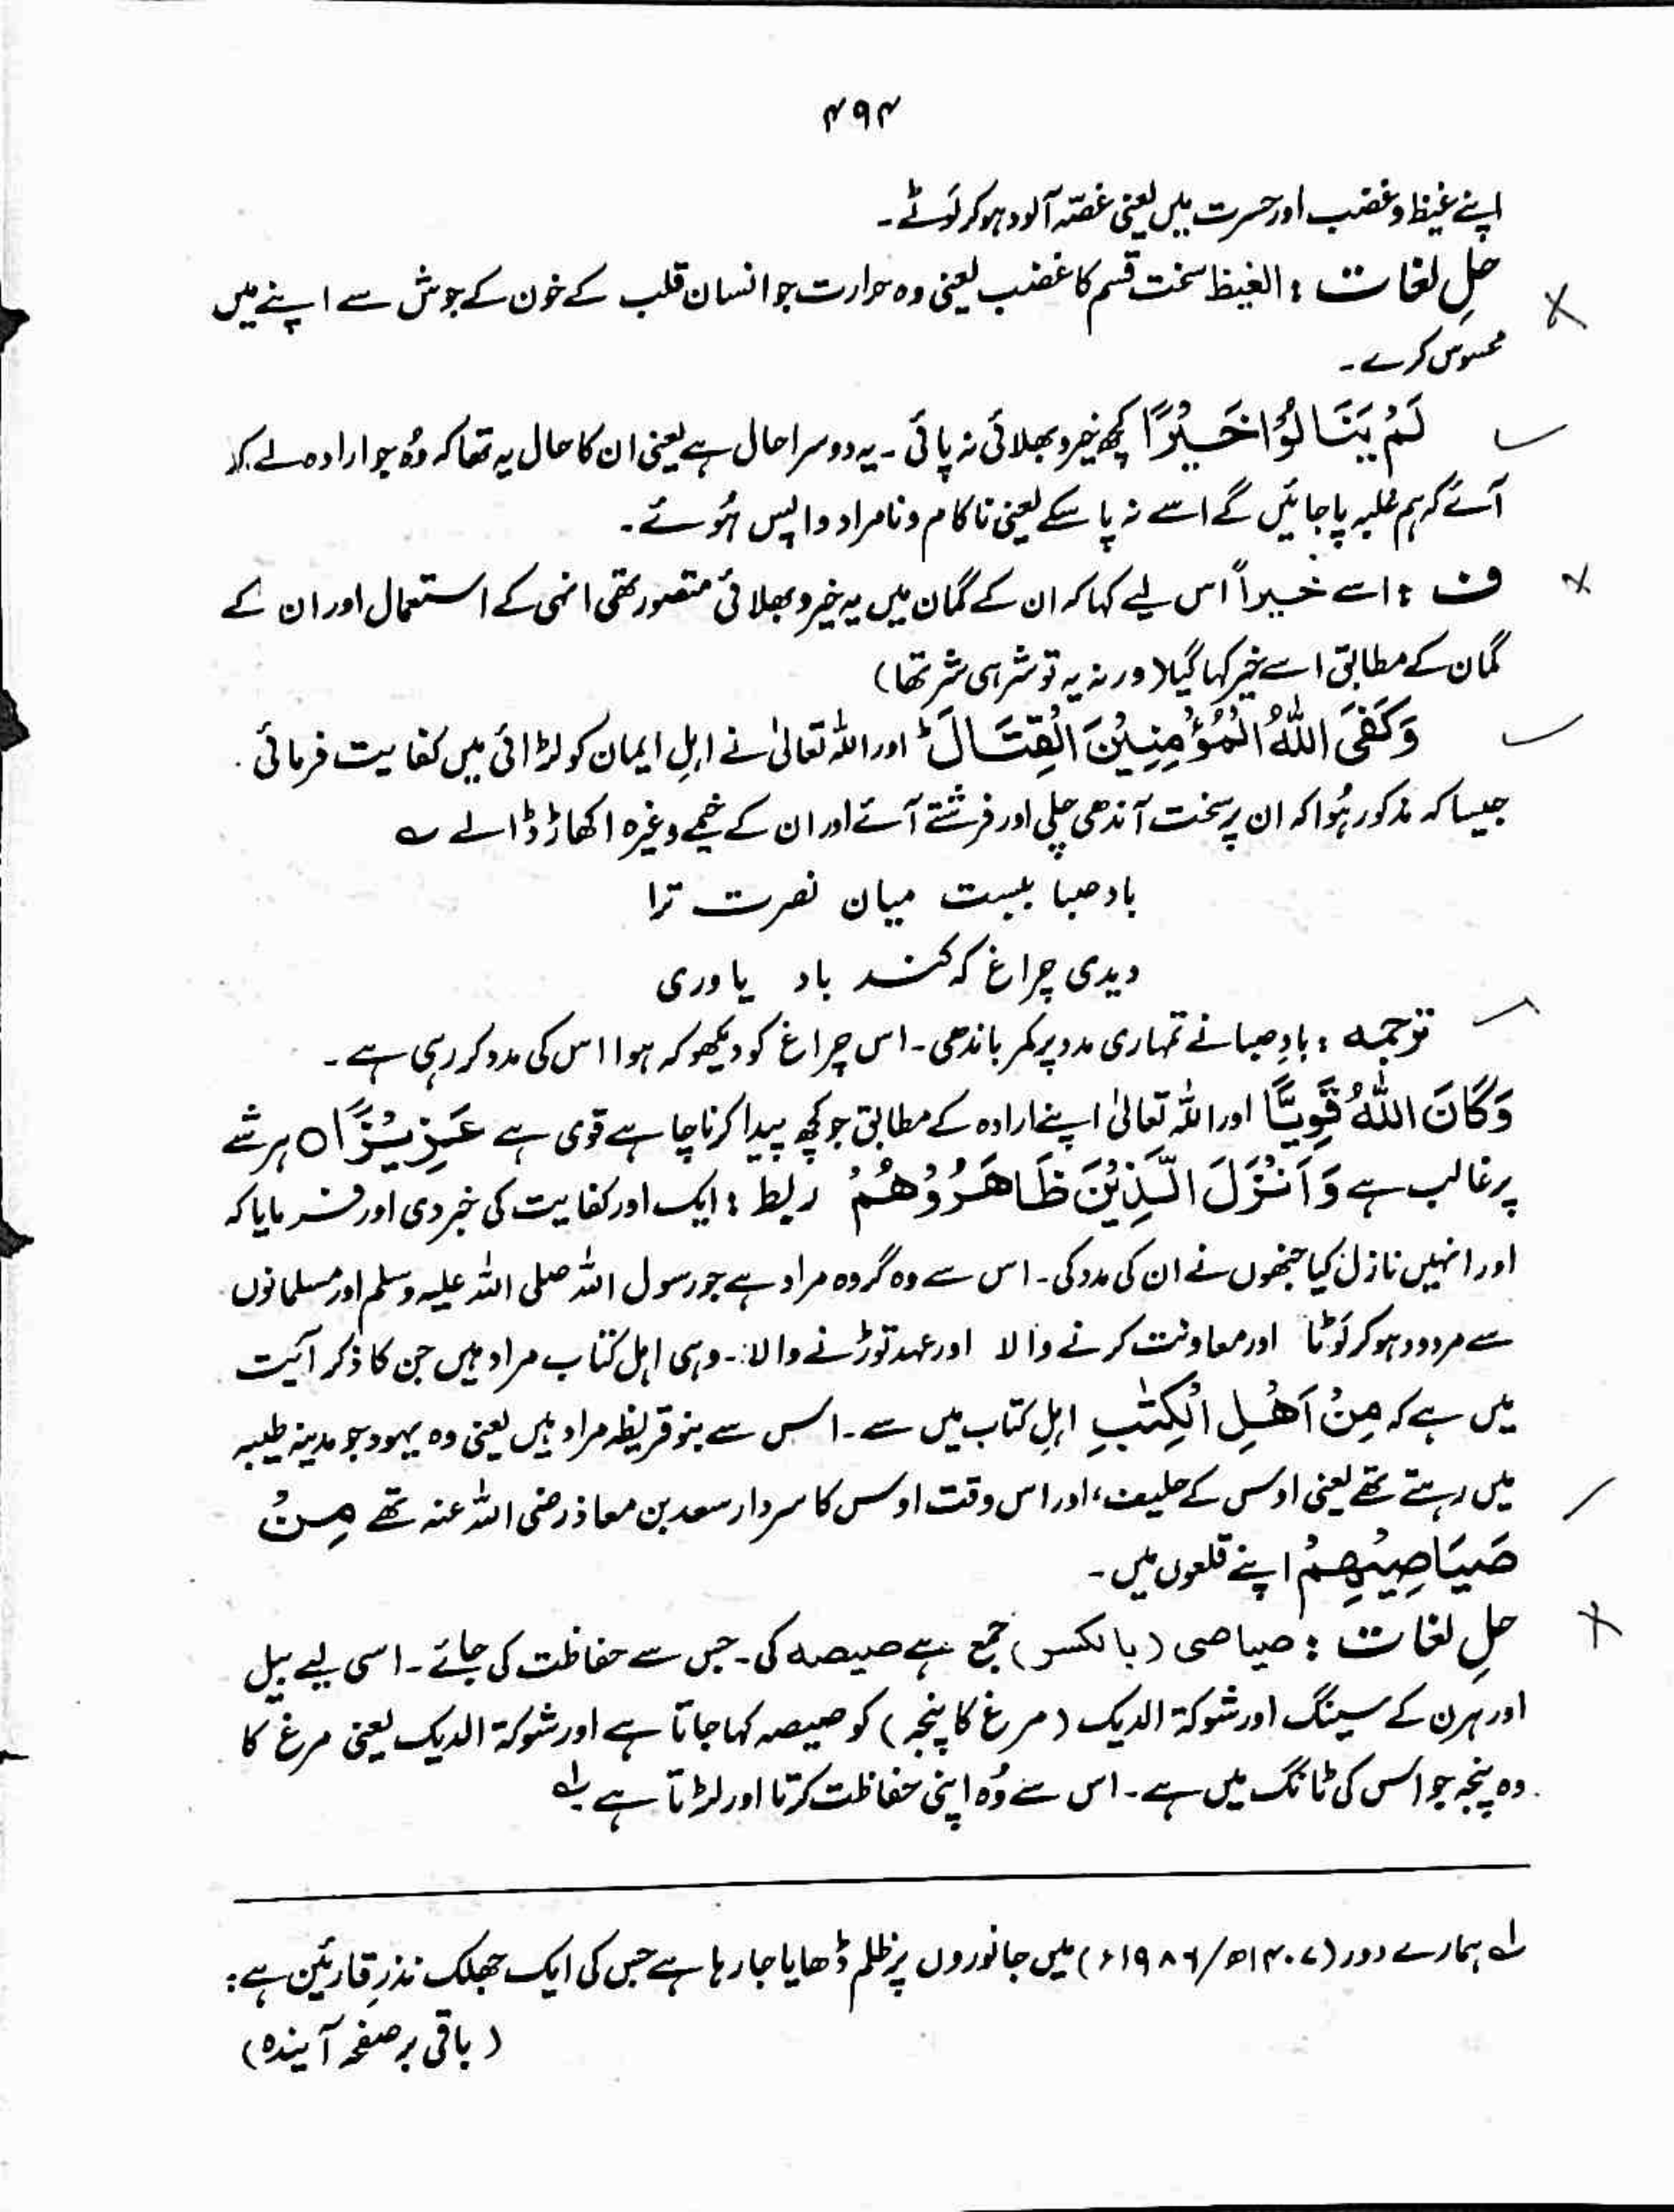 ۴۹۴
اپنے غیظ و غضب اور حسرت میں یعنی غصّہ آلود ہو کر لَوٹے۔
حلِ لغات : الغیظ سخت قسم کا غضب یعنی وہ حرارت جو انسان قلب کے خون کے جوش سے اپنے میں
محسوس کرے۔
لَمْ یَنَالُوْا خَیْرًا کچھ خیر و بھلائی نہ پائی۔ یہ دوسرا حال ہے یعنی ان کا حال یہ تھا کہ وُہ جو ارادہ لے کر
آئے کہ ہم غلبہ پا جائیں گے اسے نہ پا سکے یعنی ناکام و نامراد واپس ہُوئے۔
ف : اسے خیراً اس لیے کہا کہ ان کے گمان میں یہ خیر و بھلائی متصور تھی انہی کے استعمال اور ان کے
گمان کے مطابق اسے خیر کہا گیا (ورنہ یہ تو شر ہی شر تھا)
وَكَفَى اللّٰهُ الْمُؤْمِنِیْنَ الْقِتَالَ ؕ اور اللہ تعالیٰ نے اہلِ ایمان کو لڑائی میں کفایت فرمائی۔
جیسا کہ مذکور ہُوا کہ ان پر سخت آندھی چلی اور فرشتے آئے اور ان کے خیمے وغیرہ اکھاڑ ڈالے ؎
باد صبا ببست میان نصرت ترا
دیدی چراغ کہ کند باد یاوری
ترجمہ : بادِ صبا نے تمہاری مدد پر کمر باندھی۔ اس چراغ کو دیکھو کہ ہوا اس کی مدد کر رہی ہے۔
وَكَانَ اللّٰهُ قَوِیًّا اور اللہ تعالیٰ اپنے ارادہ کے مطابق جو کچھ پیدا کرنا چاہے قوی ہے عَزِیْزًا ○ ہر شے
پر غالب ہے وَ اَنْزَلَ الَّذِیْنَ ظَاهَرُوْهُمْ ربط : ایک اور کفایت کی خبر دی اور فرمایا کہ
اور انہیں نازل کیا جنھوں نے ان کی مدد کی۔ اس سے وہ گروہ مراد ہے جو رسول اللہ صلی اللہ علیہ وسلم اور مسلمانوں
سے مردود ہو کر لَوٹا اور معاونت کرنے والا اور عہد توڑنے والا۔ وہی اہل کتاب مراد ہیں جن کا ذکر آیت
میں ہے کہ مِنْ اَهْلِ الْكِتٰبِ اہلِ کتاب میں سے۔ اس سے بنو قریظہ مراد ہیں یعنی وہ یہود جو مدینہ طیبہ
میں رہتے تھے یعنی اوس کے حلیف، اور اس وقت اوس کا سردار سعد بن معاذ رضی اللہ عنہ تھے مِنْ
صَیَاصِیْهِمْ اپنے قلعوں میں۔
حلِ لغات : صیاصی (بالکسر) جمع ہے صیصہ کی۔ جس سے حفاظت کی جائے۔ اسی لیے بیل
اور ہرن کے سینگ اور شوکۃ الدیک (مرغ کا پنجہ) کو صیصہ کہا جاتا ہے اور شوکۃ الدیک یعنی مرغ کا
وہ پنجہ جو اس کی ٹانگ میں ہے۔ اس سے وُہ اپنی حفاظت کرتا اور لڑتا ہے لہ
لہ ہمارے دور (۱۴۰۷ھ/۱۹۸۶ء) میں جانوروں پر ظلم ڈھایا جا رہا ہے جس کی ایک جھلک نذرِ قارئین ہے :
(باقی بر صفحہ آیندہ)